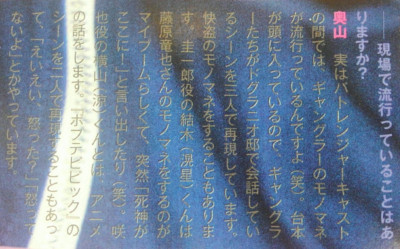 ── 現場で流行っていることはあ
りますか?
奥山 実はパトレンジャーキャスト
の間では、ギャングラーのモノマネ
が流行っているんですよ(笑)。台本
が頭に入っているので、ギャングラ
ーたちがドグラニオ邸で会話してい
るシーンを三人で再現しています。
快盗のモノマネをすることもありま
す。圭一郎役の結木(滉星)くんは
藤原竜也さんのモノマネをするのが
マイブームらしくて、突然「死神が
ここに!」と言い出したり(笑)。咲
也役の横山(涼)くんとは、アニメ
の話をします。『ポプテピピック』の
シーンを二人で再現することもあっ
て、「えいえい」「怒った?」「怒って
ないよ」とかやっています